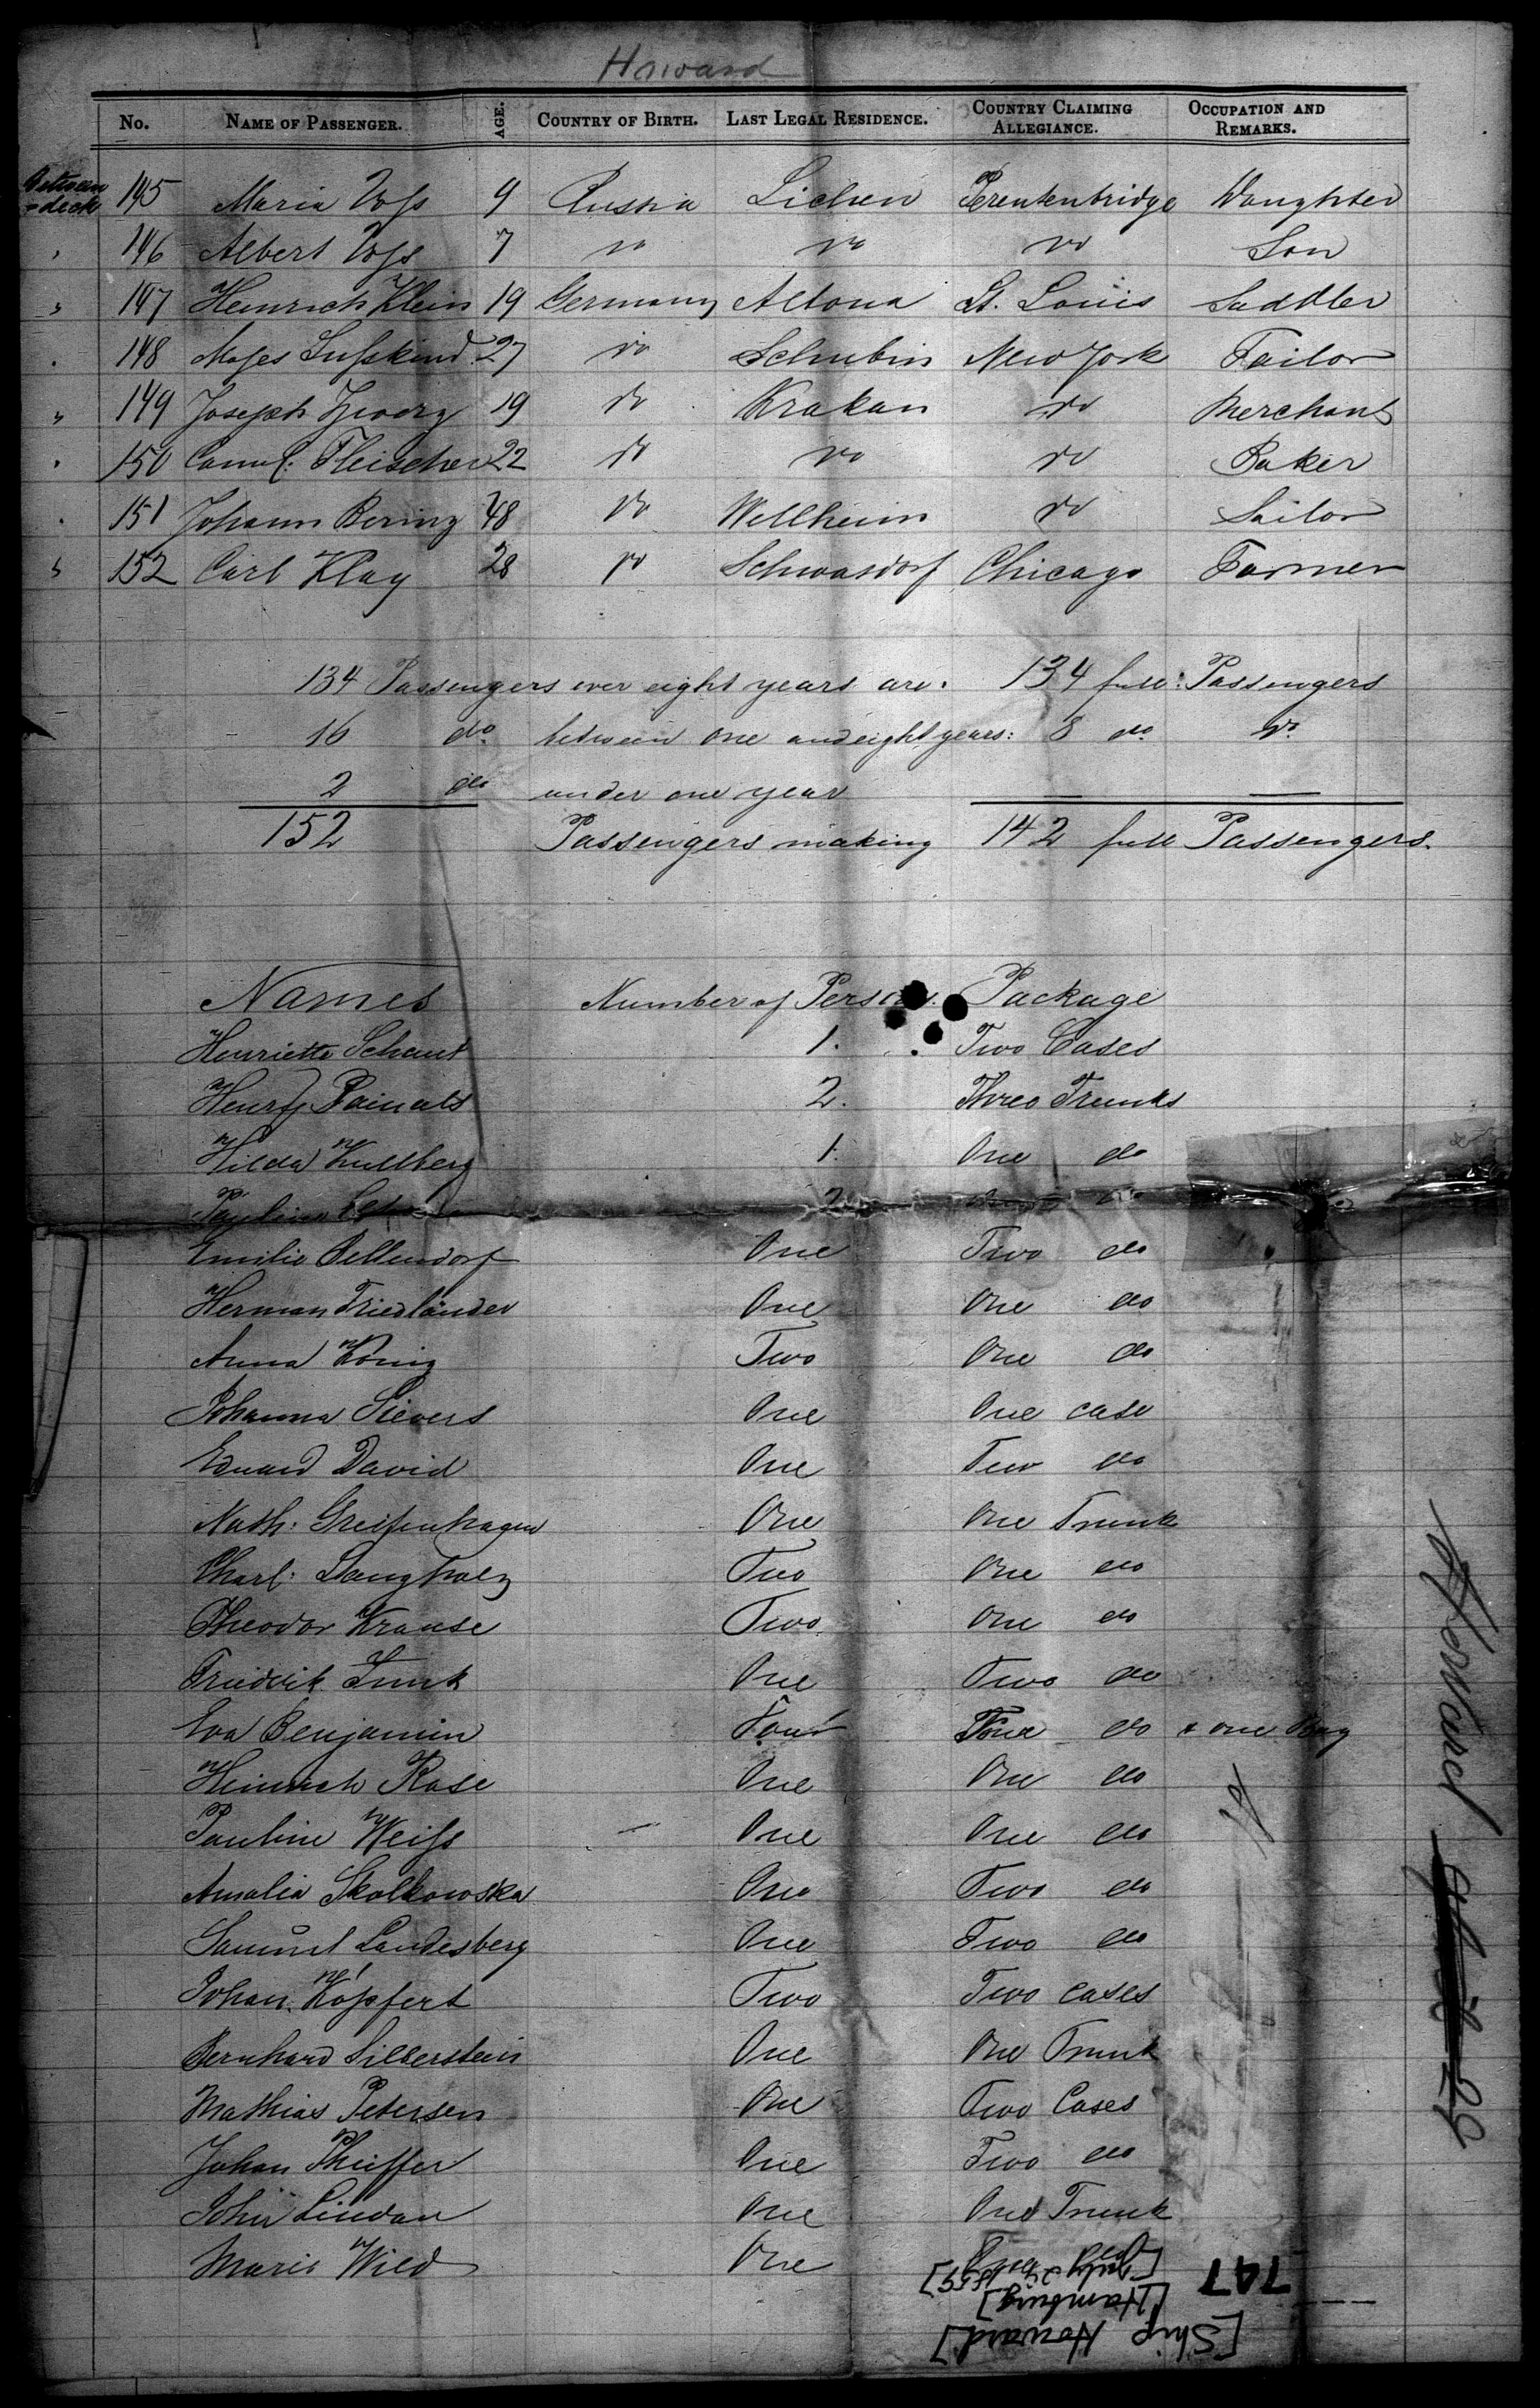 Howard
No. NAME OF PASSENGER. AGE. COUNTRY OF BIRTH. LAST LEGAL RESIDENCE. COUNTRY CLAIMING ALLEGIANCE. OCCUPATION AND REMARKS.
Between deck 145 Maria Voss 9 Russia Lichen Daughter
146 Albert Voss 7 do do do Son
147 Heinrich Klein 19 Germany Altona St. Louis Saddler
148 Moses Susskind 27 do Schubin New York Tailor
149 Joseph 19 do Krakau do Merchant
150 Fleischer 22 do do do Baker
151 Johann Bering 48 do Wellheim do Sailor
152 Carl Klay 28 do Schwasdorf Chicago Farmer
134 Passengers over eight years are. 134 full Passengers
16 do between one and eight years: 8 do do
2 do under one year — —
152 Passengers making 142 full Passengers.
Names Number of Persons. Package
Henriette Schant 1. Two Cases
Henry 2. Three Trunks
Hilda Kullberg 1. One do
Pauline 2
Emilie Bellendorf One Two do
Herman Friedländer One One do
Anna König Two One do
Johanna Sievers One One case
Eduard David One Two do
Nath: Greifenhagen One One Trunk
Charl: Langholz Two One do
Theodor Krause Two One do
Friedrik Funk One Two do
Eva Benjamin Four Four do & one Bag
Heinrich Rose One One do
Pauline Weiss One One do
Amalia Skolkowska One Two do
Samuel Landesberg One Two do
Johan Köpfert Two Two cases
Bernhard Silberstein One One Trunk
Mathias Petersen One Two Cases
Johan Pfeiffer One Two do
John Lindau One One Trunk
Marie Wild One One
Howard 29
747
[Ship Howard]
[Hamburg]